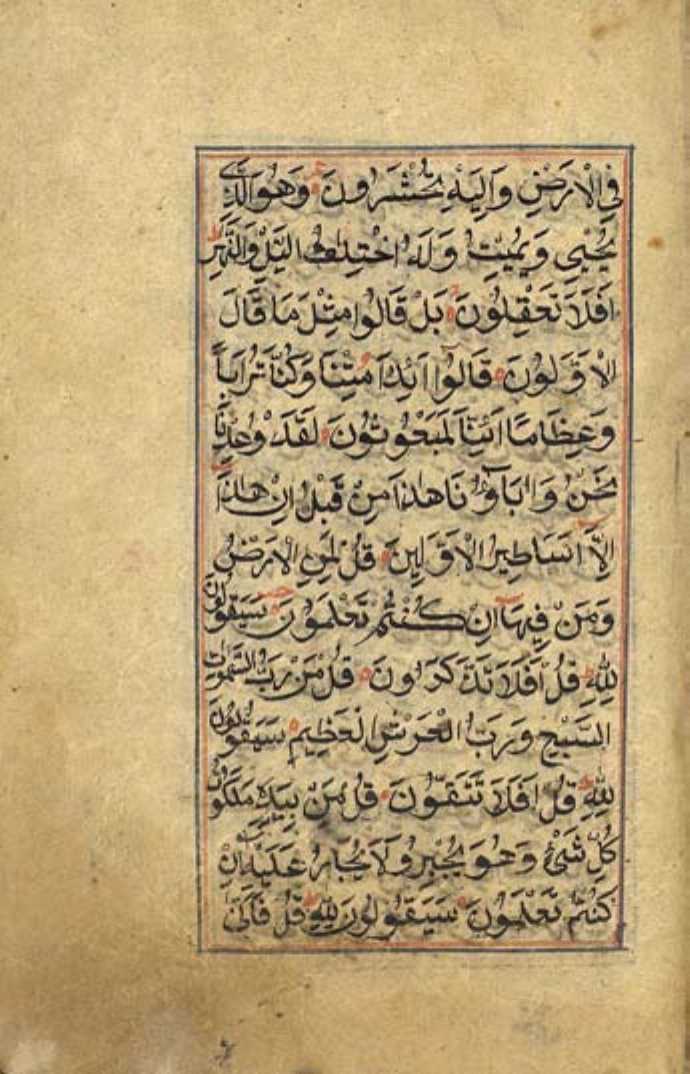 فِي الْاَرْضِ وَاِلَيْهِ تُحْشَرُونَ وَهُوَ الَّذِي
يُحْيِي وَيُمِيتُ وَلَهُ اخْتِلَافُ الَّيْلِ وَالنَّهَارِ
اَفَلَا تَعْقِلُونَ بَلْ قَالُوا مِثْلَ مَا قَالَ
الْاَوَّلُونَ قَالُوا ائِذَا مِتْنَا وَكُنَّا تُرَابًا
وَعِظَامًا ائِنَّا لَمَبْعُوثُونَ لَقَدْ وُعِدْنَا
نَحْنُ وَاٰبَاؤُنَا هٰذَا مِنْ قَبْلُ اِنْ هٰذَا
اِلَّا اَسَاطِيرُ الْاَوَّلِينَ قُلْ لِمَنِ الْاَرْضُ
وَمَنْ فِيهَا اِنْ كُنْتُمْ تَعْلَمُونَ سَيَقُولُونَ
لِلّٰهِ قُلْ اَفَلَا تَذَكَّرُونَ قُلْ مَنْ رَبُّ السَّمٰوَاتِ
السَّبْعِ وَرَبُّ الْعَرْشِ الْعَظِيمِ سَيَقُولُونَ
لِلّٰهِ قُلْ اَفَلَا تَتَّقُونَ قُلْ مَنْ بِيَدِهِ مَلَكُوتُ
كُلِّ شَيْءٍ وَهُوَ يُجِيرُ وَلَا يُجَارُ عَلَيْهِ اِنْ
كُنْتُمْ تَعْلَمُونَ سَيَقُولُونَ لِلّٰهِ قُلْ فَاَنّٰى